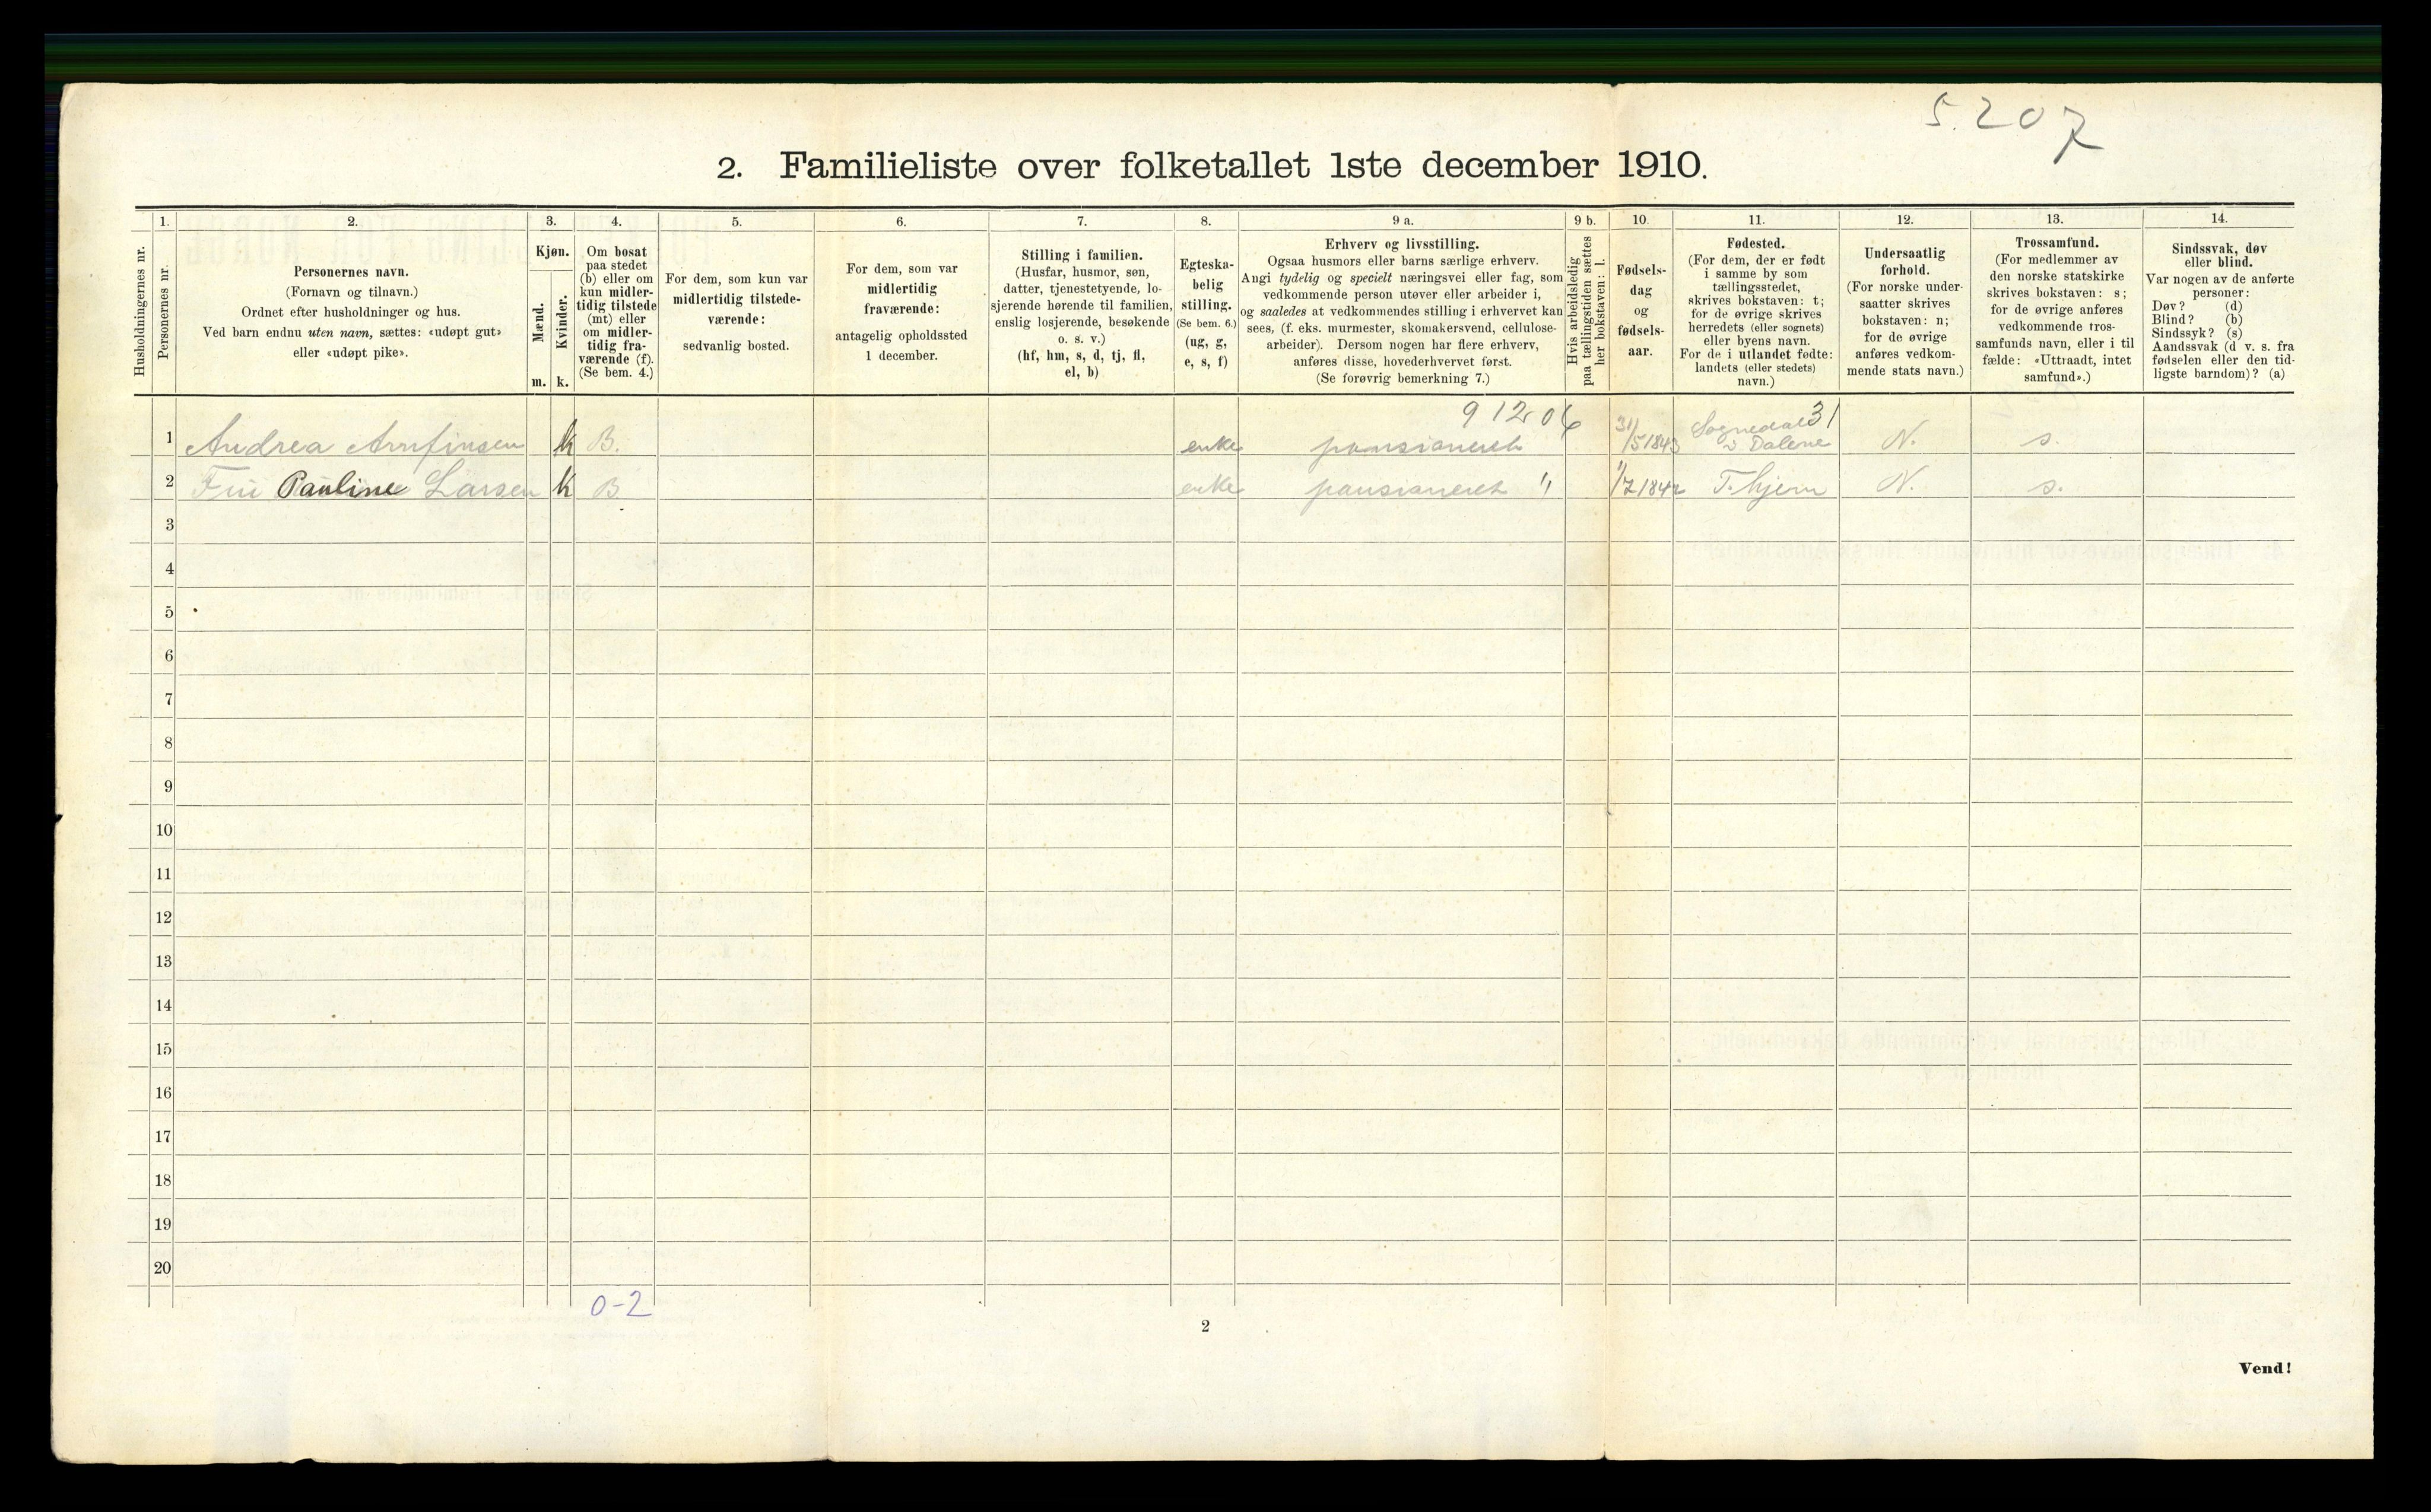 5.207
2. Familieliste over folketallet 1ste december 1910.
Husholdningernes nr.
1.
Personernes nr.
2.
Personernes navn.
(Fornavn og tilnavn.)
Ordnet efter husholdninger og hus.
Ved barn endnu uten navn, sættes: «udøpt gut»
eller «udøpt pike».
3.
Kjøn.
Mænd.
m.
Kvinder.
k.
4.
Om bosat
paa stedet
(b) eller om
kun midler-
tidig tilstede
(mt) eller
om midler-
tidig fra-
værende (f).
(Se bem. 4.)
5.
For dem, som kun var
midlertidig tilstede-
værende:
sedvanlig bosted.
6.
For dem, som var
midlertidig
fraværende:
antagelig opholdssted
1 december.
7.
Stilling i familien.
(Husfar, husmor, søn,
datter, tjenestetyende, lo-
sjerende hørende til familien,
enslig losjerende, besøkende
o. s. v.)
(hf, hm, s, d, tj, fl,
el, b)
8.
Egteska-
belig
stilling.
(Se bem. 6.)
(ug, g,
e, s, f)
9 a.
Erhverv og livsstilling.
Ogsaa husmors eller barns særlige erhverv.
Angi tydelig og specielt næringsvei eller fag, som
vedkommende person utøver eller arbeider i,
og saaledes at vedkommendes stilling i erhvervet kan
sees, (f. eks. murmester, skomakersvend, cellulose-
arbeider). Dersom nogen har flere erhverv,
anføres disse, hovederhvervet først.
(Se forøvrig bemerkning 7.)
9 b.
Hvis arbeidsledig
paa tællingstiden sættes
her bokstaven: l.
10.
Fødsels-
dag
og
fødsels-
aar.
11.
Fødested.
(For dem, der er født
i samme by som
tællingsstedet,
skrives bokstaven: t;
for de øvrige skrives
herredets (eller sognets)
eller byens navn.
For de i utlandet fødte:
landets (eller stedets)
navn.)
12.
Undersaatlig
forhold.
(For norske under-
saatter skrives
bokstaven: n;
for de øvrige
anføres vedkom-
mende stats navn.)
13.
Trossamfund.
(For medlemmer av
den norske statskirke
skrives bokstaven: s;
for de øvrige anføres
vedkommende tros-
samfunds navn, eller i til
fælde: «Uttraadt, intet
samfund».)
14.
Sindssvak, døv
eller blind.
Var nogen av de anførte
personer:
Døv? (d)
Blind? (b)
Sindssyk? (s)
Aandssvak (d v. s. fra
fødselen eller den tid-
ligste barndom)? (a)
1 Andrea Arnfinsen k B. enke pansioneret 31/5 1843 Sognedal i Dalene N. s.
31
2 Fru Pauline Larsen k B enke pansioneret " 1/7 1842 T.hjem N. s.
3
4
5
6
7
8
9
10
11
12
13
14
15
16
17
18
19
20
0-2
2
Vend!